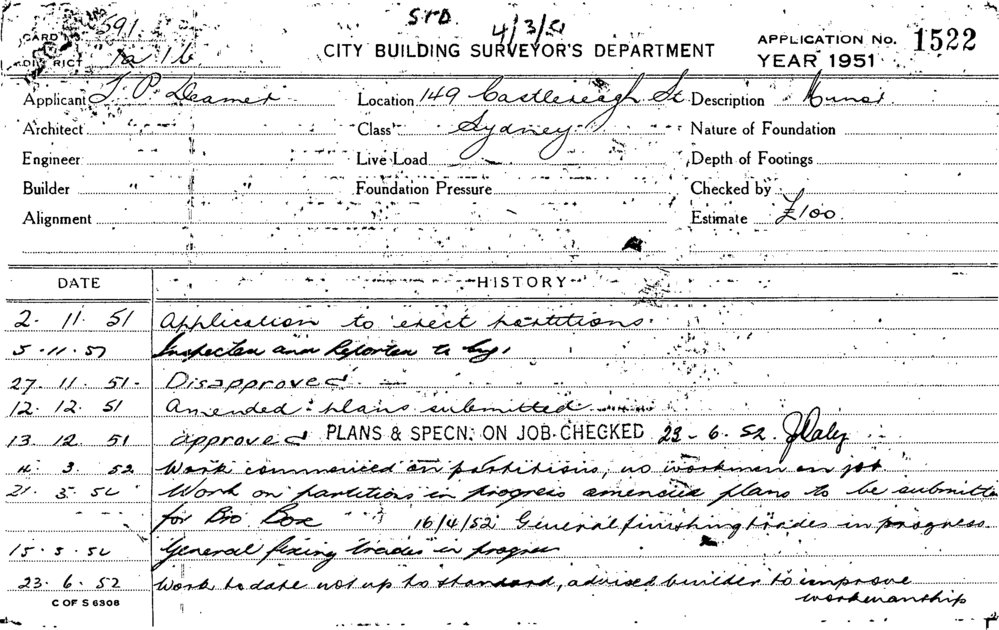 STD. 4/3/51
CARD No. 591
DISTRICT 1a 16
CITY BUILDING SURVEYOR'S DEPARTMENT
APPLICATION No. 1522
YEAR 1951
Applicant T. P. Deamer Location 149 Castlereagh St Description Minor
Architect Class Sydney Nature of Foundation
Engineer Live Load Depth of Footings
Builder " " Foundation Pressure Checked by
Alignment Estimate £100
DATE HISTORY
2. 11. 51 Application to erect partitions.
5. 11. 51 Inspected and Reported to
27. 11. 51. Disapproved
12. 12. 51 Amended plans submitted
13. 12. 51 approved PLANS & SPECN. ON JOB CHECKED 23 - 6. 52. J Daley
4. 3. 52 Work commenced on partitions, no workmen on job
21. 3. 52 Work on partitions in progress amended plans to be submitte
for Bio Box 16/4/52 General finishing trades in progress
15. 5. 52 General fixing trades in progress
23. 6. 52 Work to date not up to standard, advised builder to improve
workmanship
C OF S 6308